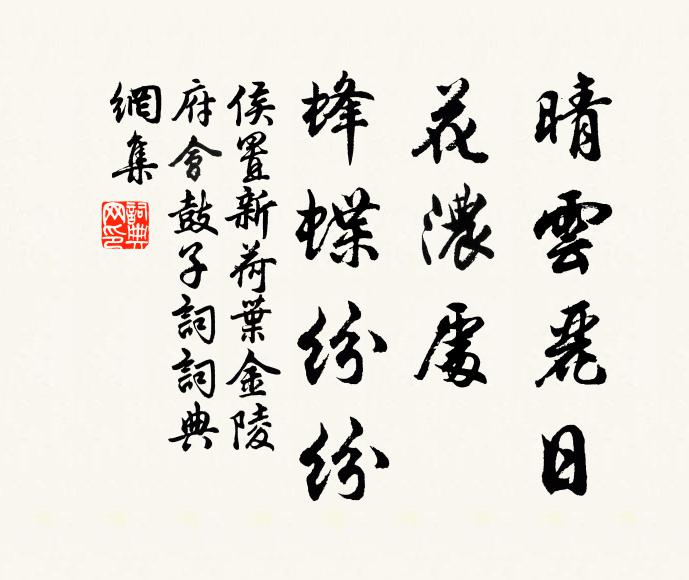 晴雲麗日
花濃處
蜂蝶紛紛
侯置新荷葉金陵
府會鼓子詞詞典
網集
詞典
网印